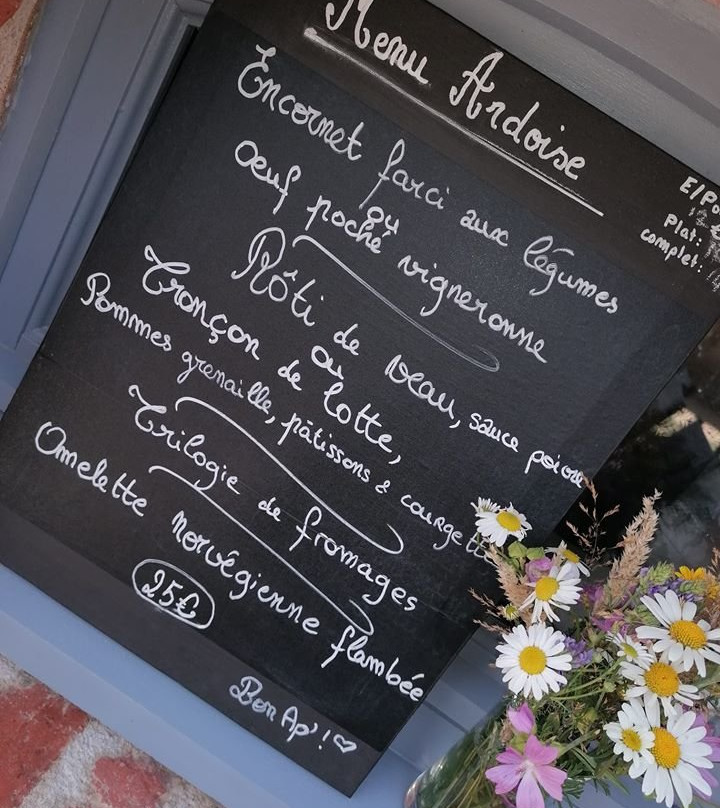 Menu Ardoise
Encornet farci aux légumes
ou
Oeuf poché vigneronne
Rôti de veau, sauce poivre
ou
Tronçon de lotte,
Pommes grenaille, pâtissons & courgett
Trilogie de fromages
Omelette norvégienne flambée
25€
Bon Ap'! ♡
E/P
Plat:
complet: